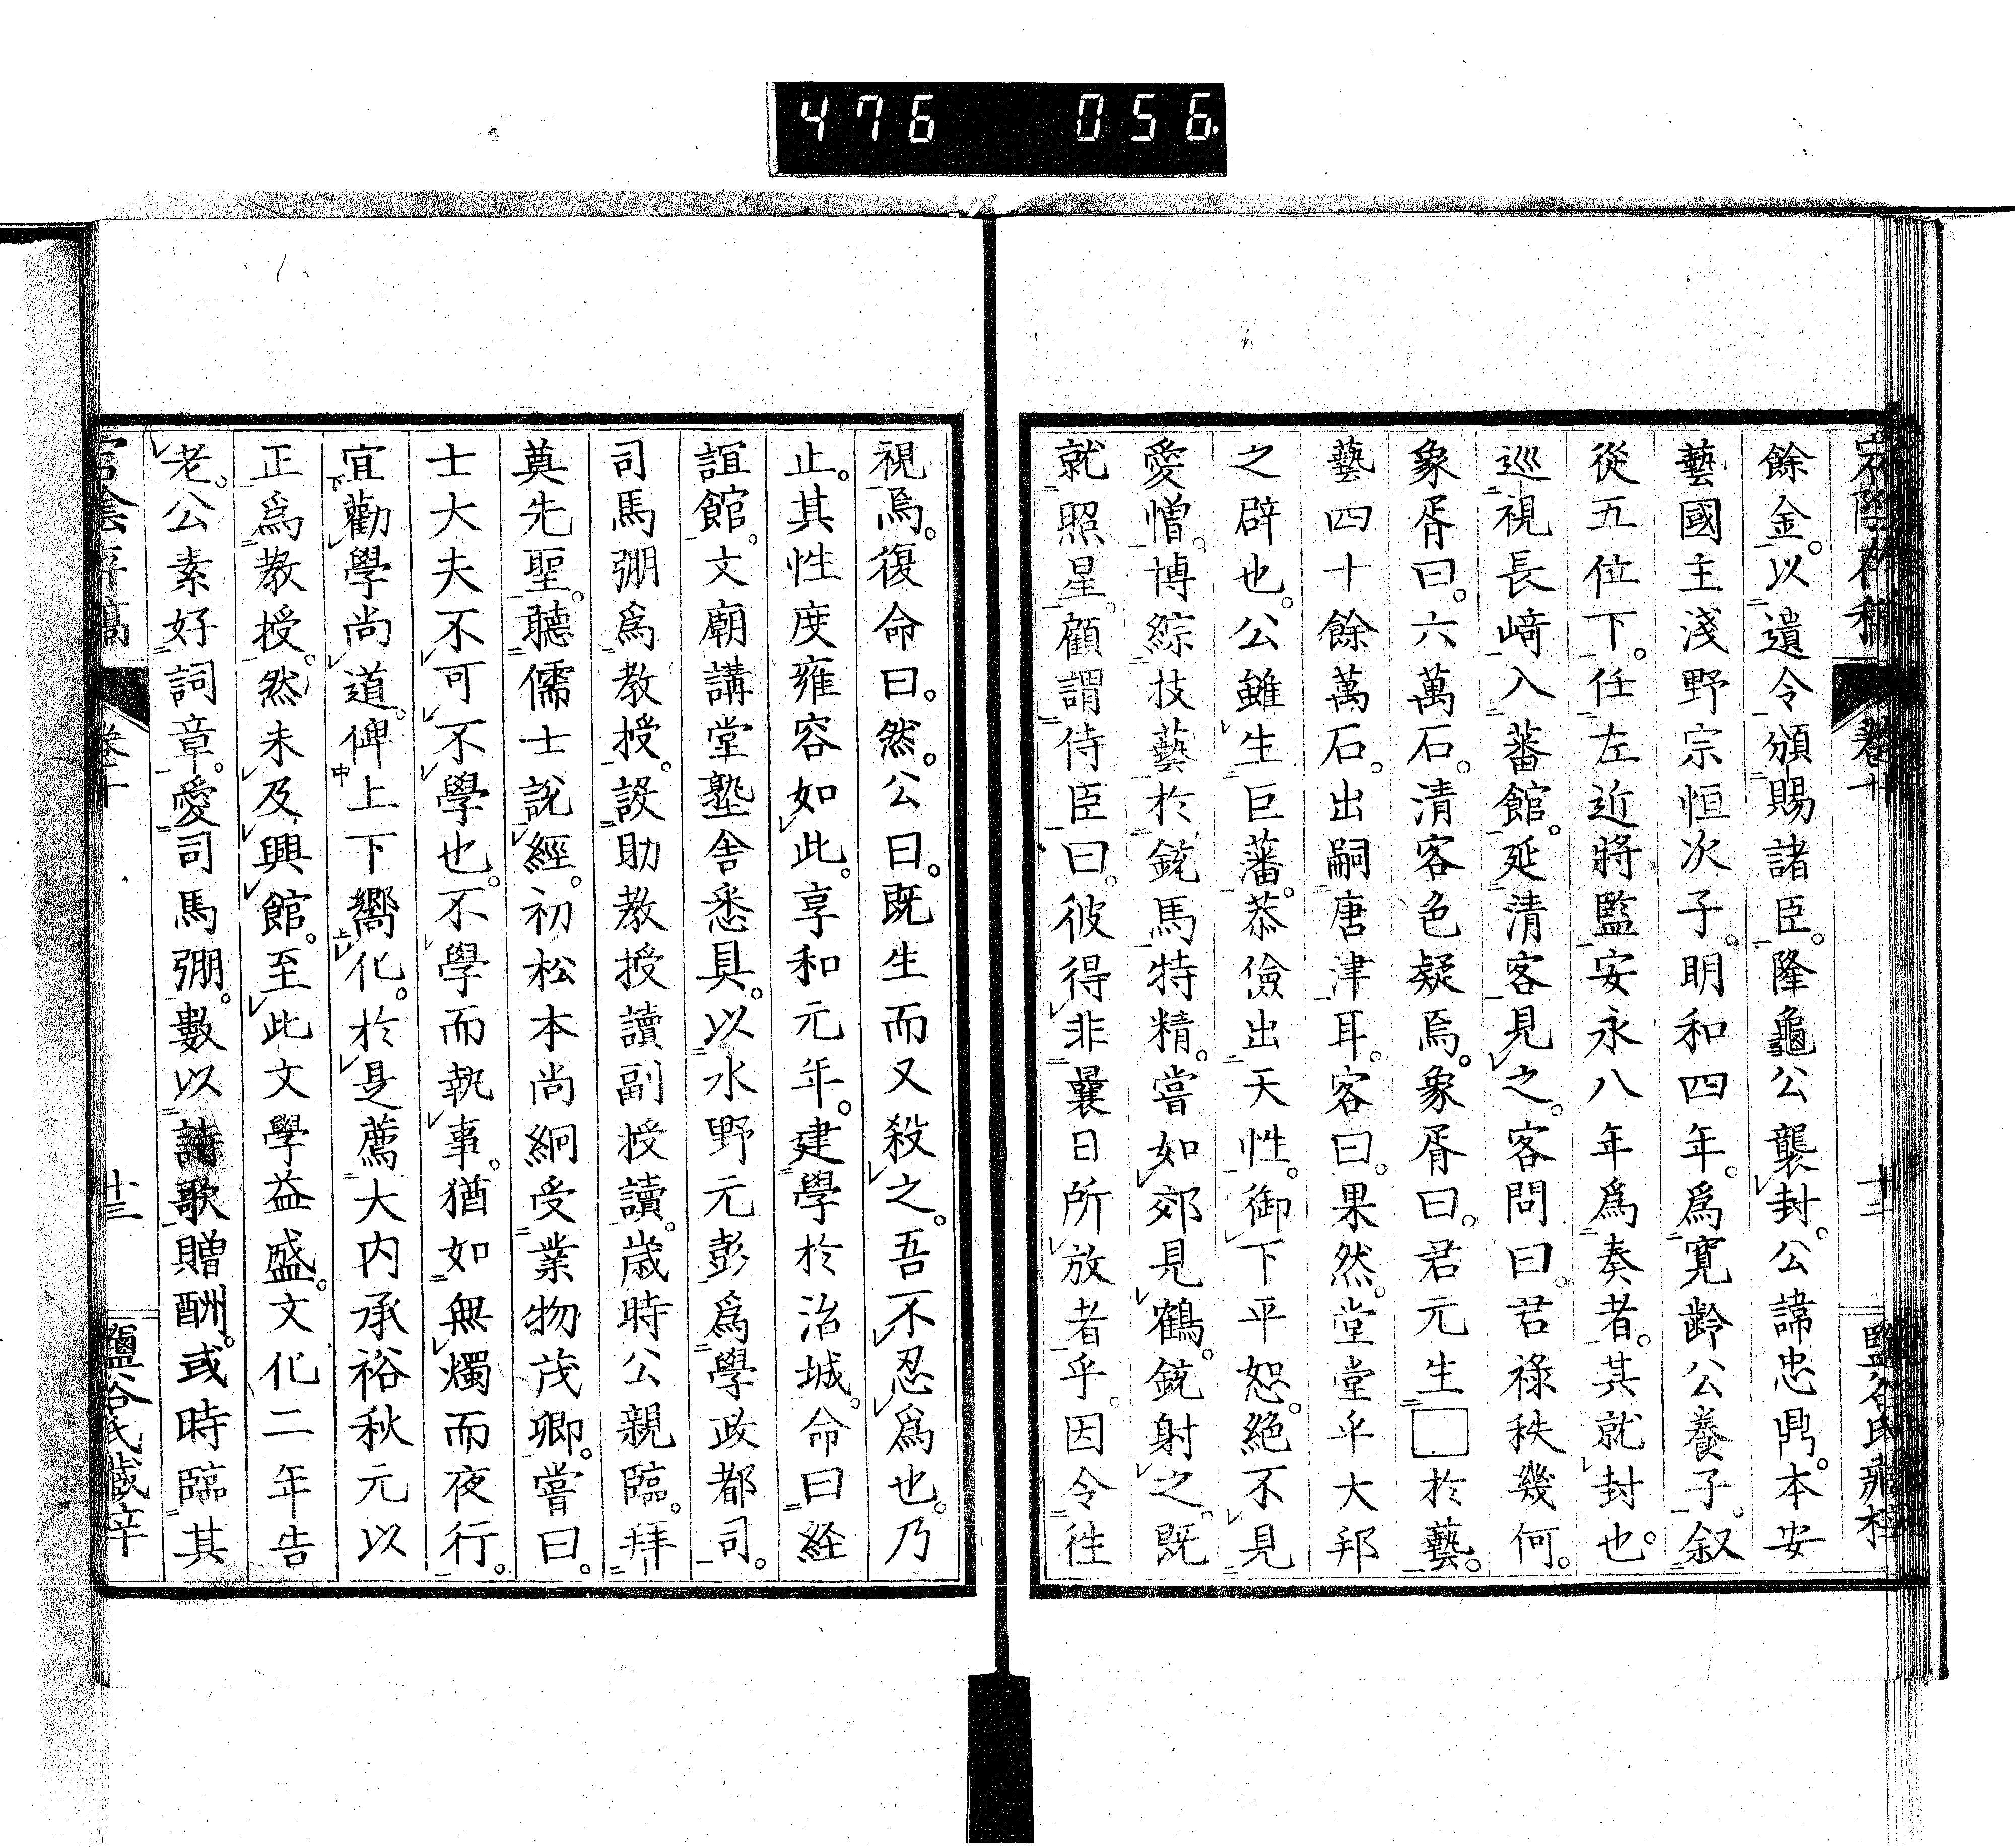 476 056
餘金。以遺令頒賜諸臣。隆龜公襲封。公諱忠鼎。本安
藝國主淺野宗恒次子。明和四年。為寬齡公養子。叙
從五位下。任左近將監。安永八年為奏者。其就封也。
巡視長﨑入蕃館。延清客見之。客問曰。君祿秩幾何。
象胥曰。六萬石。清客色疑焉。象胥曰。君元生□於藝。
藝四十餘萬石。出嗣唐津耳。客曰。果然。堂堂乎大邦
之辟也。公雖生巨藩。恭儉出天性。御下平恕。絶不見
愛憎。博綜技藝。於銃馬特精。嘗如郊見鶴。銃射之。既
就照星。顧謂侍臣曰。彼得非曩日所放者乎。因令往
視焉。復命曰。然。公曰。既生而又殺之。吾不忍爲也。乃
止。其性度雍容如此。享和元年。建學於治城。命曰経
誼館。文廟講堂塾舎悉具。以水野元彭爲學政都司。
司馬弸爲教授。設助教授讀副授讀。歳時公親臨。拜
奠先聖。聽儒士說經。初松本尚絅受業物茂卿。嘗曰。
士大夫不可不學也。不學而執事。猶如無燭而夜行。
宜勸學尚道。俾上下嚮化。於是薦大内承裕秋元以
正爲教授。然未及興館。至此文學益盛。文化二年告
老。公素好詞章。愛司馬弸。數以詩歌贈酬。或時臨其
卷十
十三
鹽谷氏藏